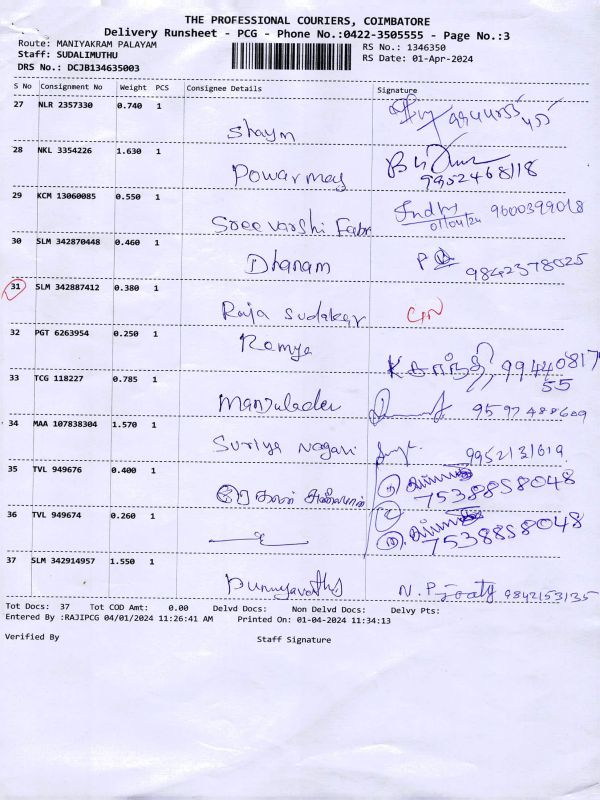 THE PROFESSIONAL COURIERS, COIMBATORE
Delivery Runsheet - PCG - Phone No.:0422-3505555 - Page No.:3
Route: MANIYAKRAM PALAYAM RS No.: 1346350
Staff: SUDALIMUTHU RS Date: 01-Apr-2024
DRS No.: DCJB134635003
S No Consignment No Weight PCS Consignee Details Signature
27 NLR 2357330 0.740 1
Shaym
28 NKL 3354226 1.630 1
Powarmay 9952468118
29 KCM 13060085 0.550 1
Sree varshi Fabr 01/04/24 9600399018
30 SLM 342870448 0.460 1
Dhanam 9842378025
31 SLM 342887412 0.380 1
Raja Sudakar
32 PGT 6263954 0.250 1
Ramya 99440817
55
33 TCG 118227 0.785 1
9597488609
34 MAA 107838304 1.570 1
Suriya Nagari 9952131619
35 TVL 949676 0.400 1
7538858048
36 TVL 949674 0.260 1
7538858048
37 SLM 342914957 1.550 1
9842153135
Tot Docs: 37 Tot COD Amt: 0.00 Delvd Docs: Non Delvd Docs: Delvy Pts:
Entered By :RAJIPCG 04/01/2024 11:26:41 AM Printed On: 01-04-2024 11:34:13
Verified By Staff Signature